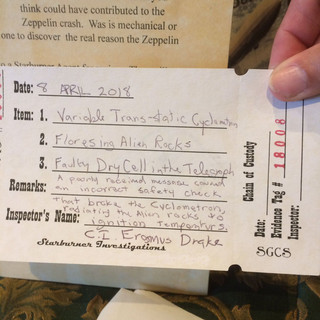 think could have contributed to the
Zeppelin crash. Was is mechanical or
one to discover the real reason the Zeppelin
Date: 8 APRIL 2018
Item: 1. Variable Trans-static Cyclometron
2. Floresing Alien Rocks
3. Faulty Dry Cell in the Telegraph
Remarks: A poorly recieved message caused
an incorrect safety check
that broke the Cyclometron,
radiating the Alien rocks to
ignition Temperature.
Inspector's Name: C.I. Erasmus Drake
Starburner Investigations
Chain of Custody
Evidence Tag # 18008
Date:
Inspector:
SGCS